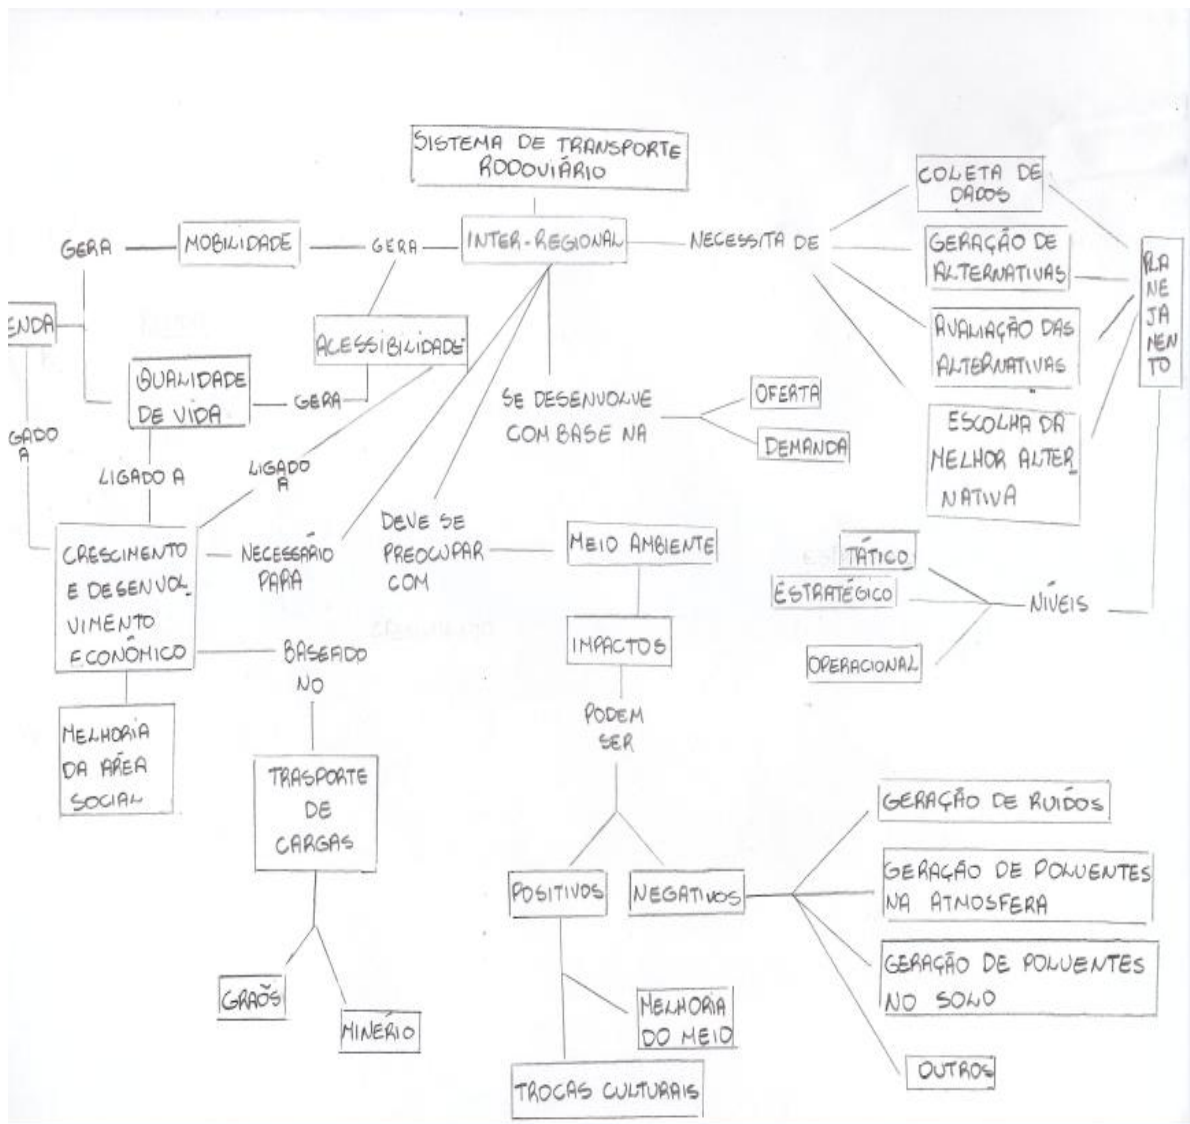 SISTEMA DE TRANSPORTE
RODOVIÁRIO
INTER-REGIONAL
GERA
MOBILIDADE
GERA
NECESSITA DE
COLETA DE
DADOS
GERAÇÃO DE
ALTERNATIVAS
AVALIAÇÃO DAS
ALTERNATIVAS
ESCOLHA DA
MELHOR ALTER_
NATIVA
PLA
NE
JA
MEN
TO
ENDA
ACESSIBILIDADE
QUALIDADE
DE VIDA
GERA
SE DESENVOLVE
COM BASE NA
OFERTA
DEMANDA
GADO
A
LIGADO A
LIGADO
A
CRESCIMENTO
E DESENVOL_
VIMENTO
ECONÔMICO
NECESSÁRIO
PARA
DEVE SE
PREOCUPAR
COM
MEIO AMBIENTE
TÁTICO
ESTRATÉGICO
OPERACIONAL
NÍVEIS
IMPACTOS
BASEADO
NO
MELHORIA
DA ÁREA
SOCIAL
PODEM
SER
TRASPORTE
DE
CARGAS
GRAÕS
MINÉRIO
POSITIVOS
NEGATIVOS
GERAÇÃO DE RUÍDOS
GERAÇÃO DE POLUENTES
NA ATMOSFERA
GERAÇÃO DE POLUENTES
NO SOLO
OUTROS
MELHORIA
DO MEIO
TROCAS CULTURAIS